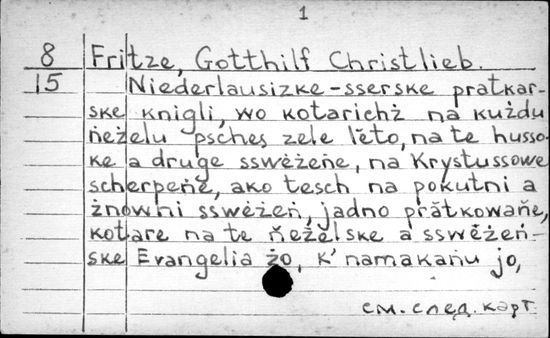 1
8 Fritze, Gotthilf Christlieb.
15 Niederlausizke-sserske pratkar-
ske knigli, wo kotarichż na kuždu
ńeželu psches zele lěto, na te husso-
ke a druge sswěżeńe, na Krystussowe
scherpeńe, ako tesch na pokutni a
żnowni sswěżeń, jadno prătkowańe,
kotare na te ńeželske a sswěżeń-
ske Evangelia żo, k' namakańu jo,
см. след. карт.